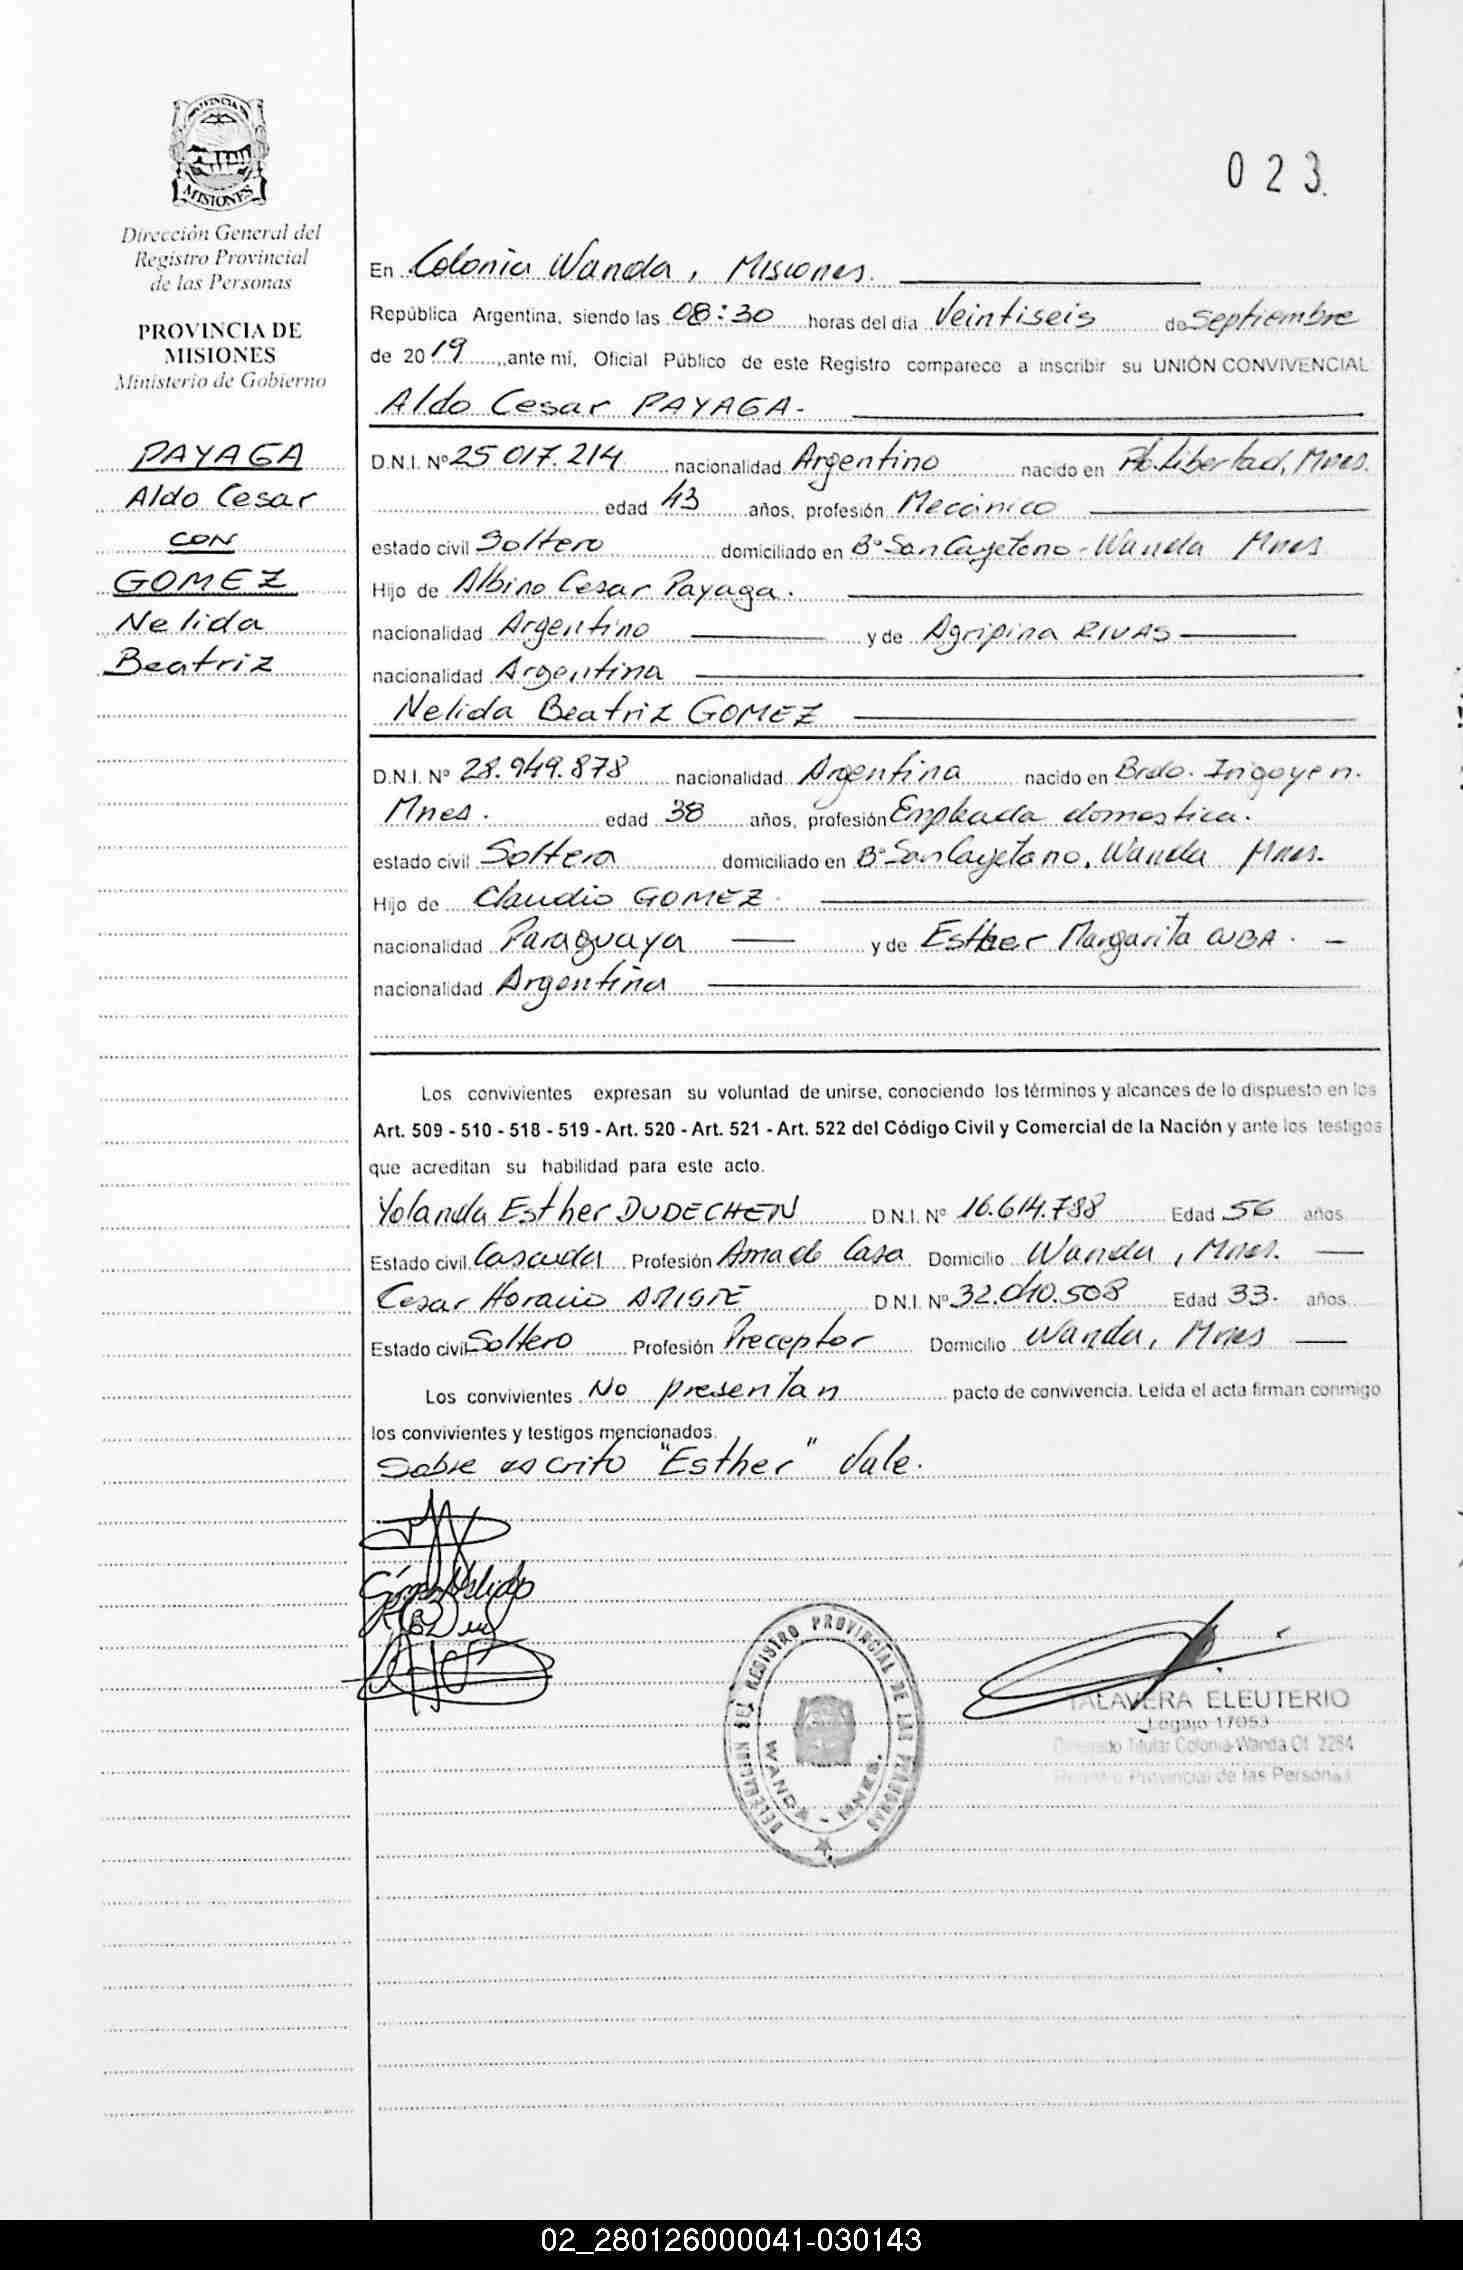 PROVINCIA DE
MISIONES
Dirección General del
Registro Provincial
de las Personas
PROVINCIA DE
MISIONES
Ministerio de Gobierno
PAYAGA
Aldo Cesar
CON
GOMEZ
Nelida
Beatriz
023.
En Colonia Wanda, Misiones.
República Argentina, siendo las 08:30 horas del día Veintiseis de Septiembre
de 2019, ante mí, Oficial Público de este Registro comparece a inscribir su UNIÓN CONVIVENCIAL
Aldo Cesar PAYAGA.-
D.N.I. Nº 25.017.214 nacionalidad Argentino nacido en Pto. Libertad, Mnes.
edad 43 años, profesión Mecánico
estado civil Soltero domiciliado en Bº San Cayetano - Wanda Mnes
Hijo de Albino Cesar Payaga.
nacionalidad Argentino y de Agripina RIVAS
nacionalidad Argentina
Nelida Beatriz GOMEZ
D.N.I. Nº 28.949.878 nacionalidad Argentina nacido en Brdo. Irigoyen.
Mnes. edad 38 años, profesión Empleada domestica.
estado civil Soltera domiciliado en Bº San Cayetano, Wanda Mnes.
Hijo de Claudio GOMEZ.
nacionalidad Paraguaya y de Esther Margarita
nacionalidad Argentina
Los convivientes expresan su voluntad de unirse, conociendo los términos y alcances de lo dispuesto en los
Art. 509 - 510 - 518 - 519 - Art. 520 - Art. 521 - Art. 522 del Código Civil y Comercial de la Nación y ante los testigos
que acreditan su habilidad para este acto.
Yolanda Esther DUDECHEN D.N.I. Nº 16.614.788 Edad 56 años
Estado civil Casada Profesión Ama de Casa Domicilio Wanda, Mnes.
Cesar Horacio D.N.I. Nº 32.040.508 Edad 33. años
Estado civil Soltero Profesión Preceptor Domicilio Wanda, Mnes
Los convivientes No presentan pacto de convivencia. Leída el acta firman conmigo
los convivientes y testigos mencionados.
Sobre escrito "Esther" Vale.
Gómez Nelida
DELEGACION DEL REGISTRO PROVINCIAL DE LAS PERSONAS
WANDA - MNES.
TALAVERA ELEUTERIO
Legajo 17053
Delegado Titular Colonia Wanda Of. 2284
Registro Provincial de las Personas
02_280126000041-030143